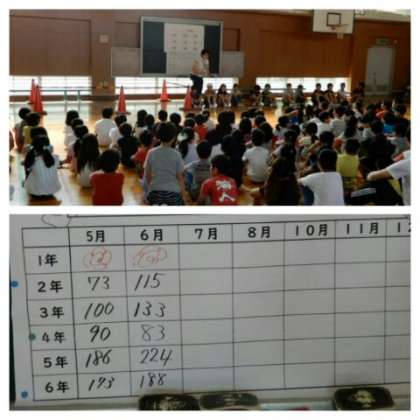 5月 6月 7月 8月 10月 11月
1年
2年 73 115
3年 100 133
4年 90 83
5年 186 224
6年 173 188